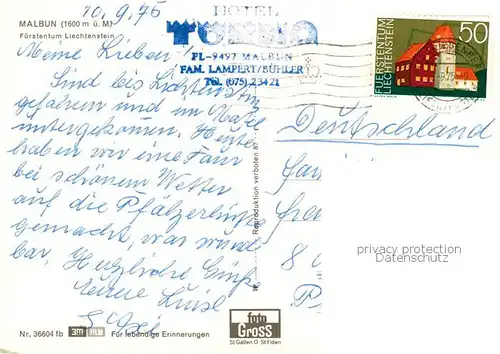 10.9.75
MALBUN (1600 m ü. M)
Fürstentum Liechtenstein
HOTEL
FL-9497 MALBUN
FAM. LAMPERT/BÜHLER
Tel (075) 2 34 21
FÜRSTENTUM
LIECHTENSTEIN
50
Meine Lieben!
Sind bis Lichtenstein
gefahren und im Hotel
untergekommen. Heute
haben wir eine Tour
bei schönem Wetter
auf die Pfälzerhütte
gemacht, war wunder
bar. Herzliche Grüße
Luise
Deutschland
Reproduktion verboten 87
privacy protection
Datenschutz
Nr. 36604 fb
3M FILM
Für lebendige Erinnerungen
foto
GROSS
St.Gallen O St.Fiden